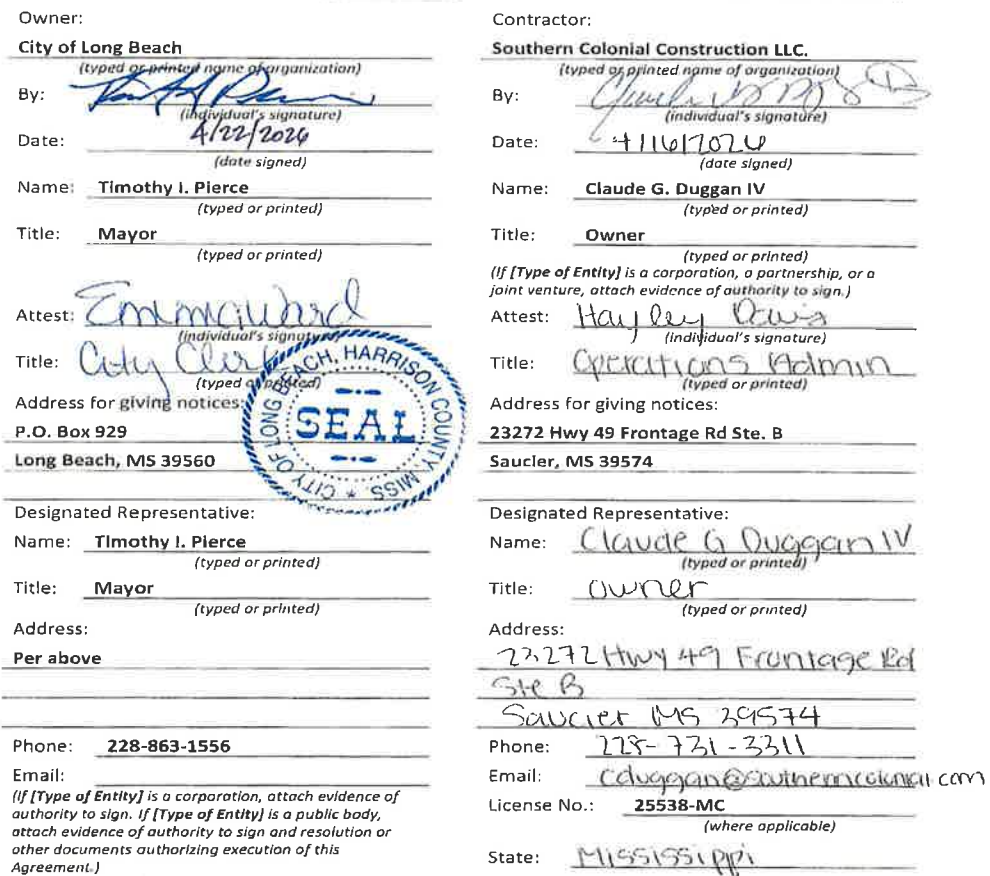 Owner:
City of Long Beach
(typed or printed name of organization)
By:
(individual's signature)
Date: 4/22/2026
(date signed)
Name: Timothy I. Pierce
(typed or printed)
Title: Mayor
(typed or printed)
Attest: Emma Ward
(individual's signature)
Title: City Clerk
(typed or printed)
CITY OF LONG BEACH, HARRISON COUNTY, MISS. *
SEAL
Address for giving notices:
P.O. Box 929
Long Beach, MS 39560
Designated Representative:
Name: Timothy I. Pierce
(typed or printed)
Title: Mayor
(typed or printed)
Address:
Per above
Phone: 228-863-1556
Email:
(If [Type of Entity] is a corporation, attach evidence of
authority to sign. If [Type of Entity] is a public body,
attach evidence of authority to sign and resolution or
other documents authorizing execution of this
Agreement.)
Contractor:
Southern Colonial Construction LLC.
(typed or printed name of organization)
By:
(individual's signature)
Date: 4/16/2026
(date signed)
Name: Claude G. Duggan IV
(typed or printed)
Title: Owner
(typed or printed)
(If [Type of Entity] is a corporation, a partnership, or a
joint venture, attach evidence of authority to sign.)
Attest: Hayley Davis
(individual's signature)
Title: Operations Admin
(typed or printed)
Address for giving notices:
23272 Hwy 49 Frontage Rd Ste. B
Saucier, MS 39574
Designated Representative:
Name: Claude G Duggan IV
(typed or printed)
Title: Owner
(typed or printed)
Address:
23272 Hwy 49 Frontage Rd
Ste B
Saucier MS 39574
Phone: 228-731-3311
Email: cduggan@southerncolonial.com
License No.: 25538-MC
(where applicable)
State: Mississippi